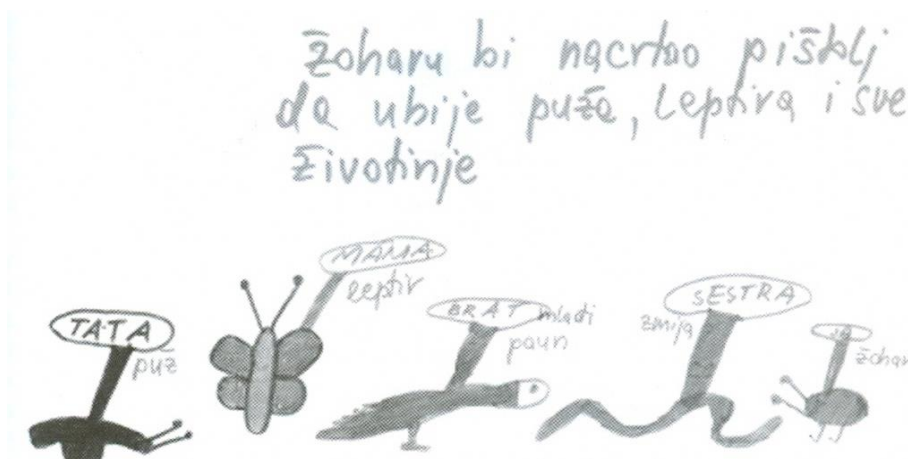 Žoharu bi nacrtao pištolj
da ubije puža, leptira i sve
životinje
MAMA
leptir
TATA
puž
BRAT mladi
paun
SESTRA
zmija
JA
žohar